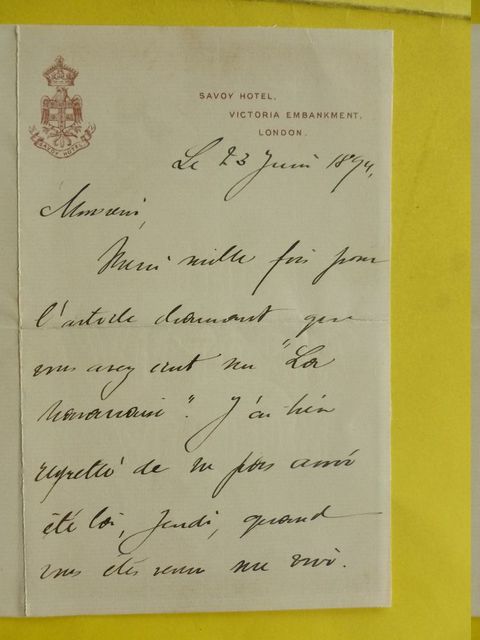 SAVOY HOTEL
SAVOY HOTEL,
VICTORIA EMBANKMENT,
LONDON.
Le 23 Juin 1894,
Monsieur,
Merci mille fois pour
l'article charmant que
vous avez écrit sur "La
Navarraise". J'ai bien
regretté de ne pas avoir
été là, Jeudi, quand
vous êtes venu me voir.